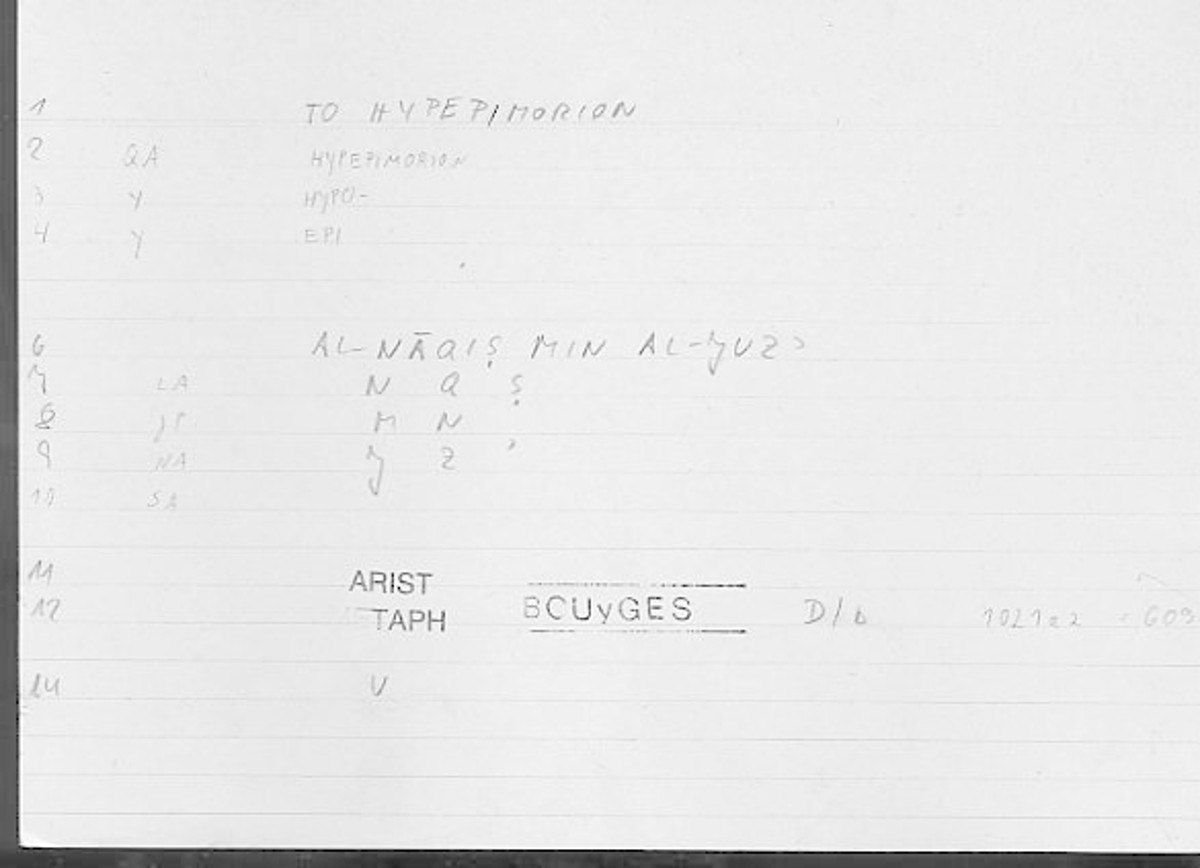 1 TO HYPEPIMORION
2 QA HYPEPIMORION
3 Y HYPO-
4 Y EPI
6 AL-NĀQIṢ MIN AL-JUZʾ
7 LA N Q Ṣ
8 M N
9 NA J Z ʾ
10 SA
11 ARIST
12 TAPH BCUyGES D/b 1021a2
14 V